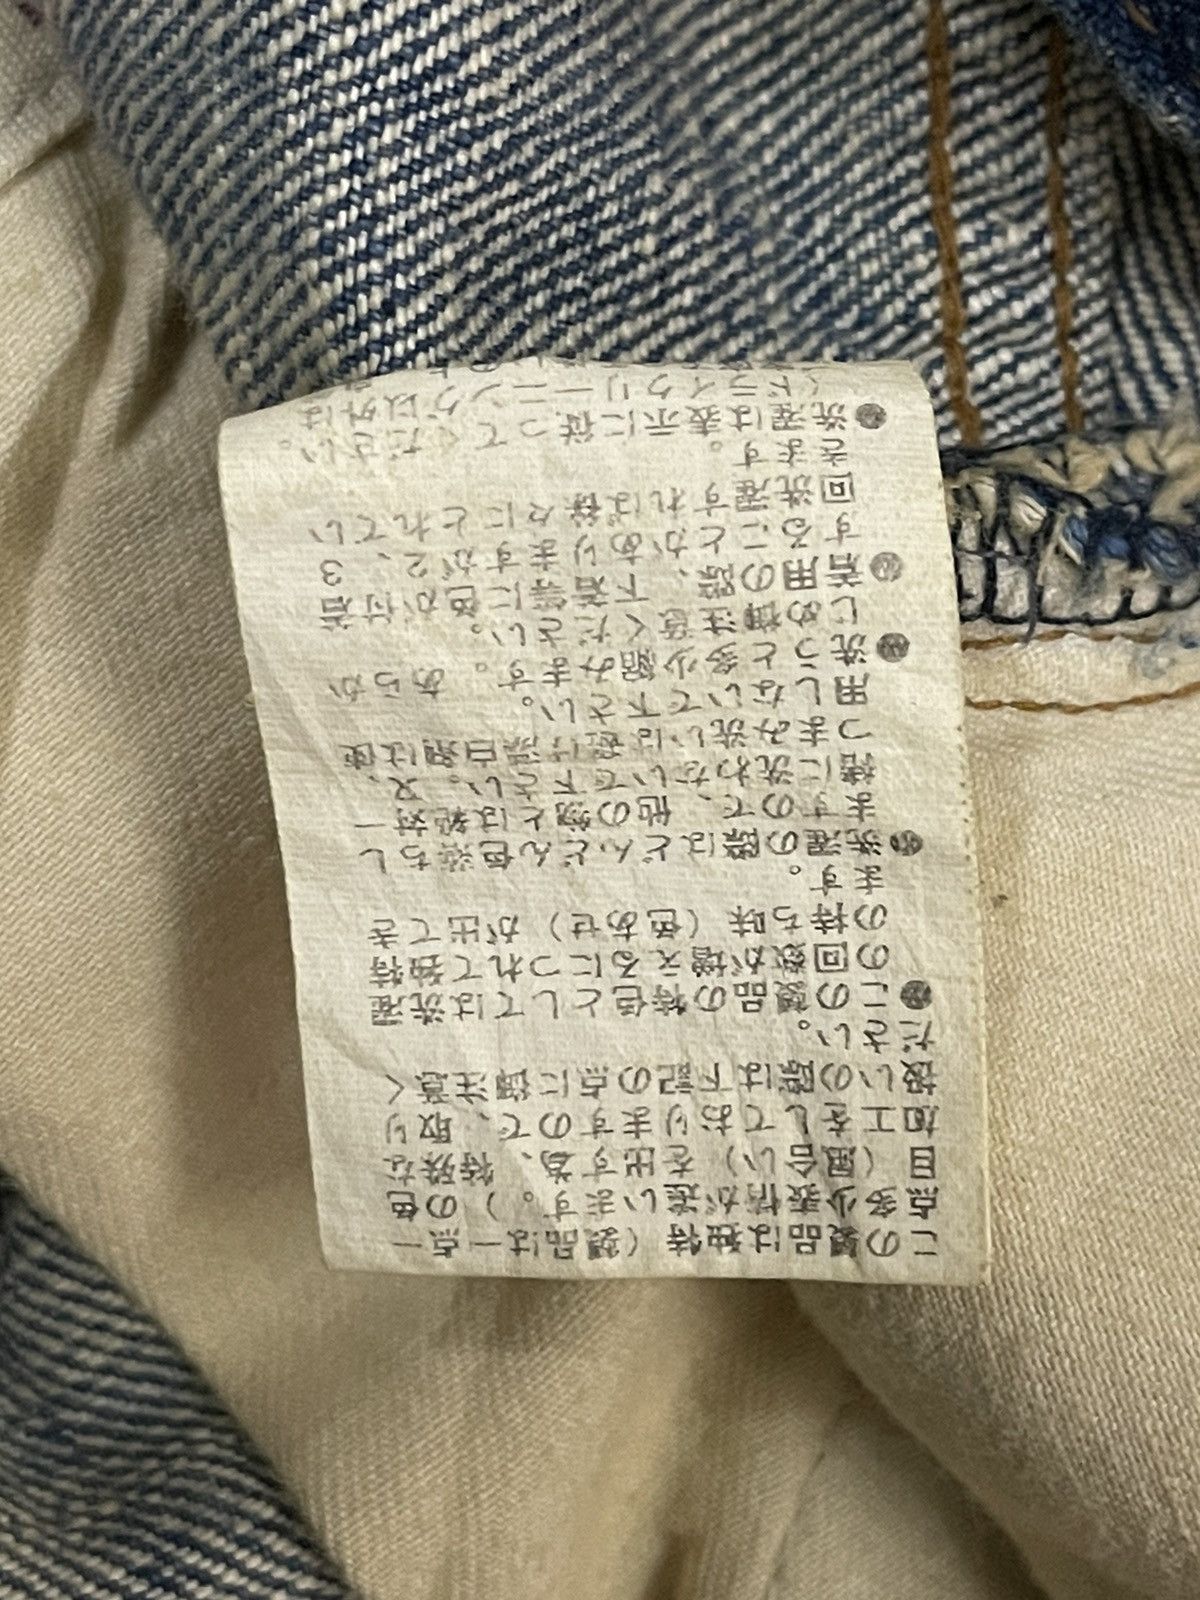 この製品は独特（製品は一点一
点多少表情が違います。）の色
目（風合い）を出す為、特殊な
加工をしておりますので、取り
扱いの際は下記の点に御注意く
ださい。
●この製品の特色としては洗濯
の回数が増えるにつれて独特
の持ち味（色あせ）が出てき
ます。
●洗濯の際はどんどん色落ちし
ますので、他の物とは絶対一
緒に洗わないで下さい。又、
つまみ洗いは避け漂白剤は使
用しないで下さい。
●洗うと多少縮みます。あらか
じめ御注意ください。
●着用の際、下着等に色が付着
することがありますが、2、3
回洗濯すれば徐々にとれてい
きます。
●洗濯は表示に従ってください。
（ドライクリーニング以外は